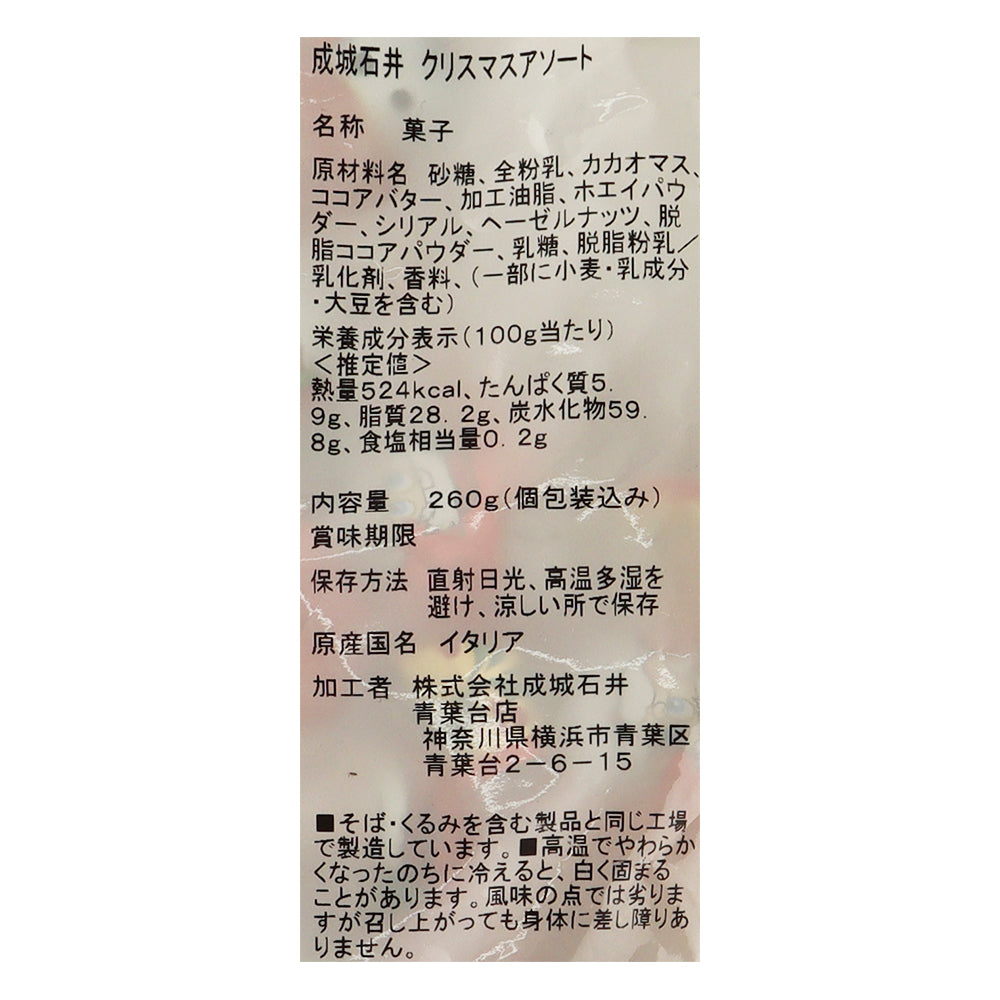 成城石井 クリスマスアソート
名称 菓子
原材料名 砂糖、全粉乳、カカオマス、
ココアバター、加工油脂、ホエイパウ
ダー、シリアル、ヘーゼルナッツ、脱
脂ココアパウダー、乳糖、脱脂粉乳／
乳化剤、香料、(一部に小麦・乳成分
・大豆を含む)
栄養成分表示(100g当たり)
＜推定値＞
熱量524kcal、たんぱく質5.
9g、脂質28.2g、炭水化物59.
8g、食塩相当量0.2g
内容量 260g(個包装込み)
賞味期限
保存方法 直射日光、高温多湿を
避け、涼しい所で保存
原産国名 イタリア
加工者 株式会社成城石井
青葉台店
神奈川県横浜市青葉区
青葉台2-6-15
■そば・くるみを含む製品と同じ工場
で製造しています。■高温でやわらか
くなったのちに冷えると、白く固まる
ことがあります。風味の点では劣りま
すが召し上がっても身体に差し障りあ
りません。